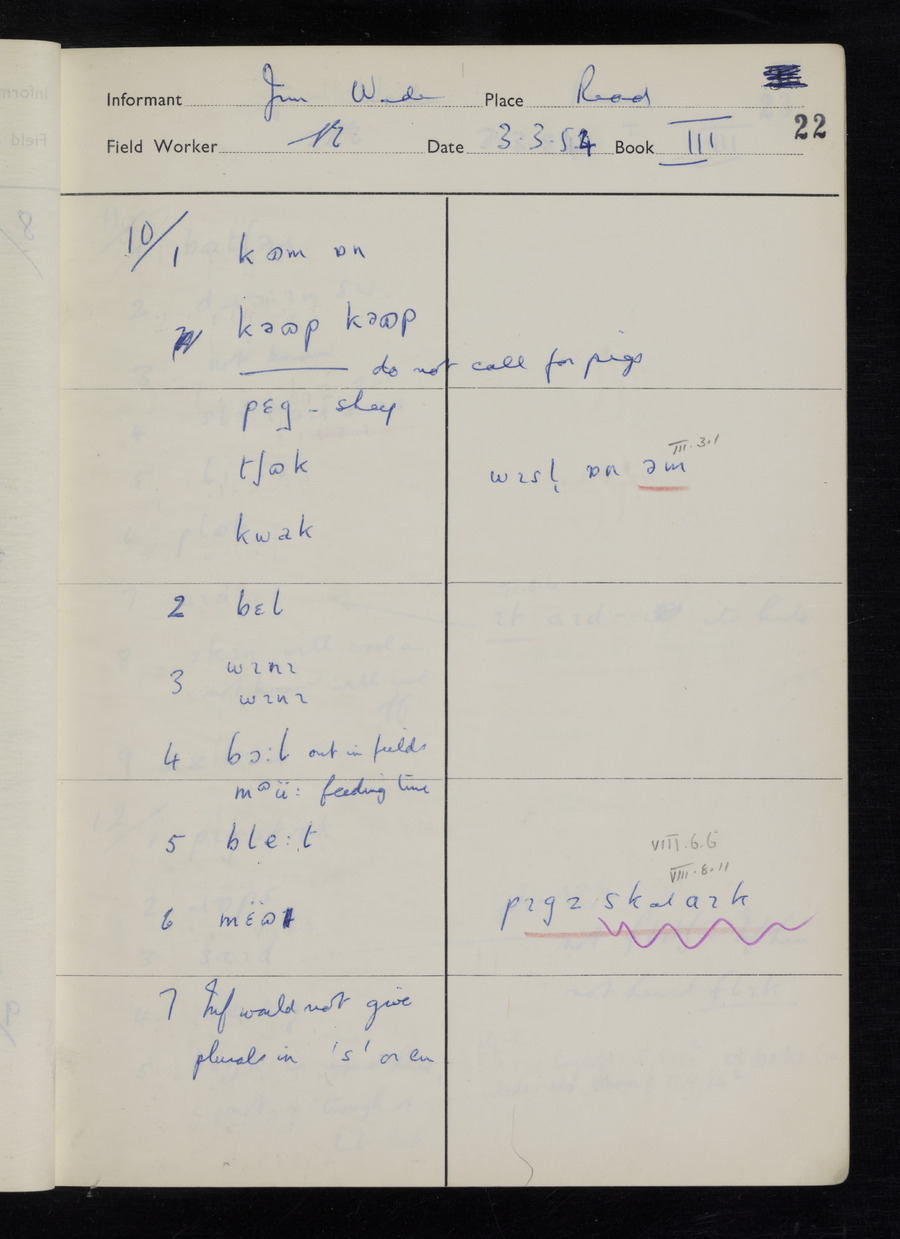 Informant Jim Wade Place Read
Field Worker Date 3.3.54 Book III
22
10/1 kɷm ɒn
kəɷp kəɷp
do not call for pigs
pɛg - sheep
tʃɷk
III.3.1
wɪsl̩ ɒn əm
kwak
2 bɛl
3 wɪnɪ
wɪnɪ
4 bɔ:l out in fields
mɷü: feeding time
5 ble:t
VIII.6.6
VIII.8.11
6 mɛ̈ɷ
pɪgz
7 Inf would not give
plurals in 's' or en